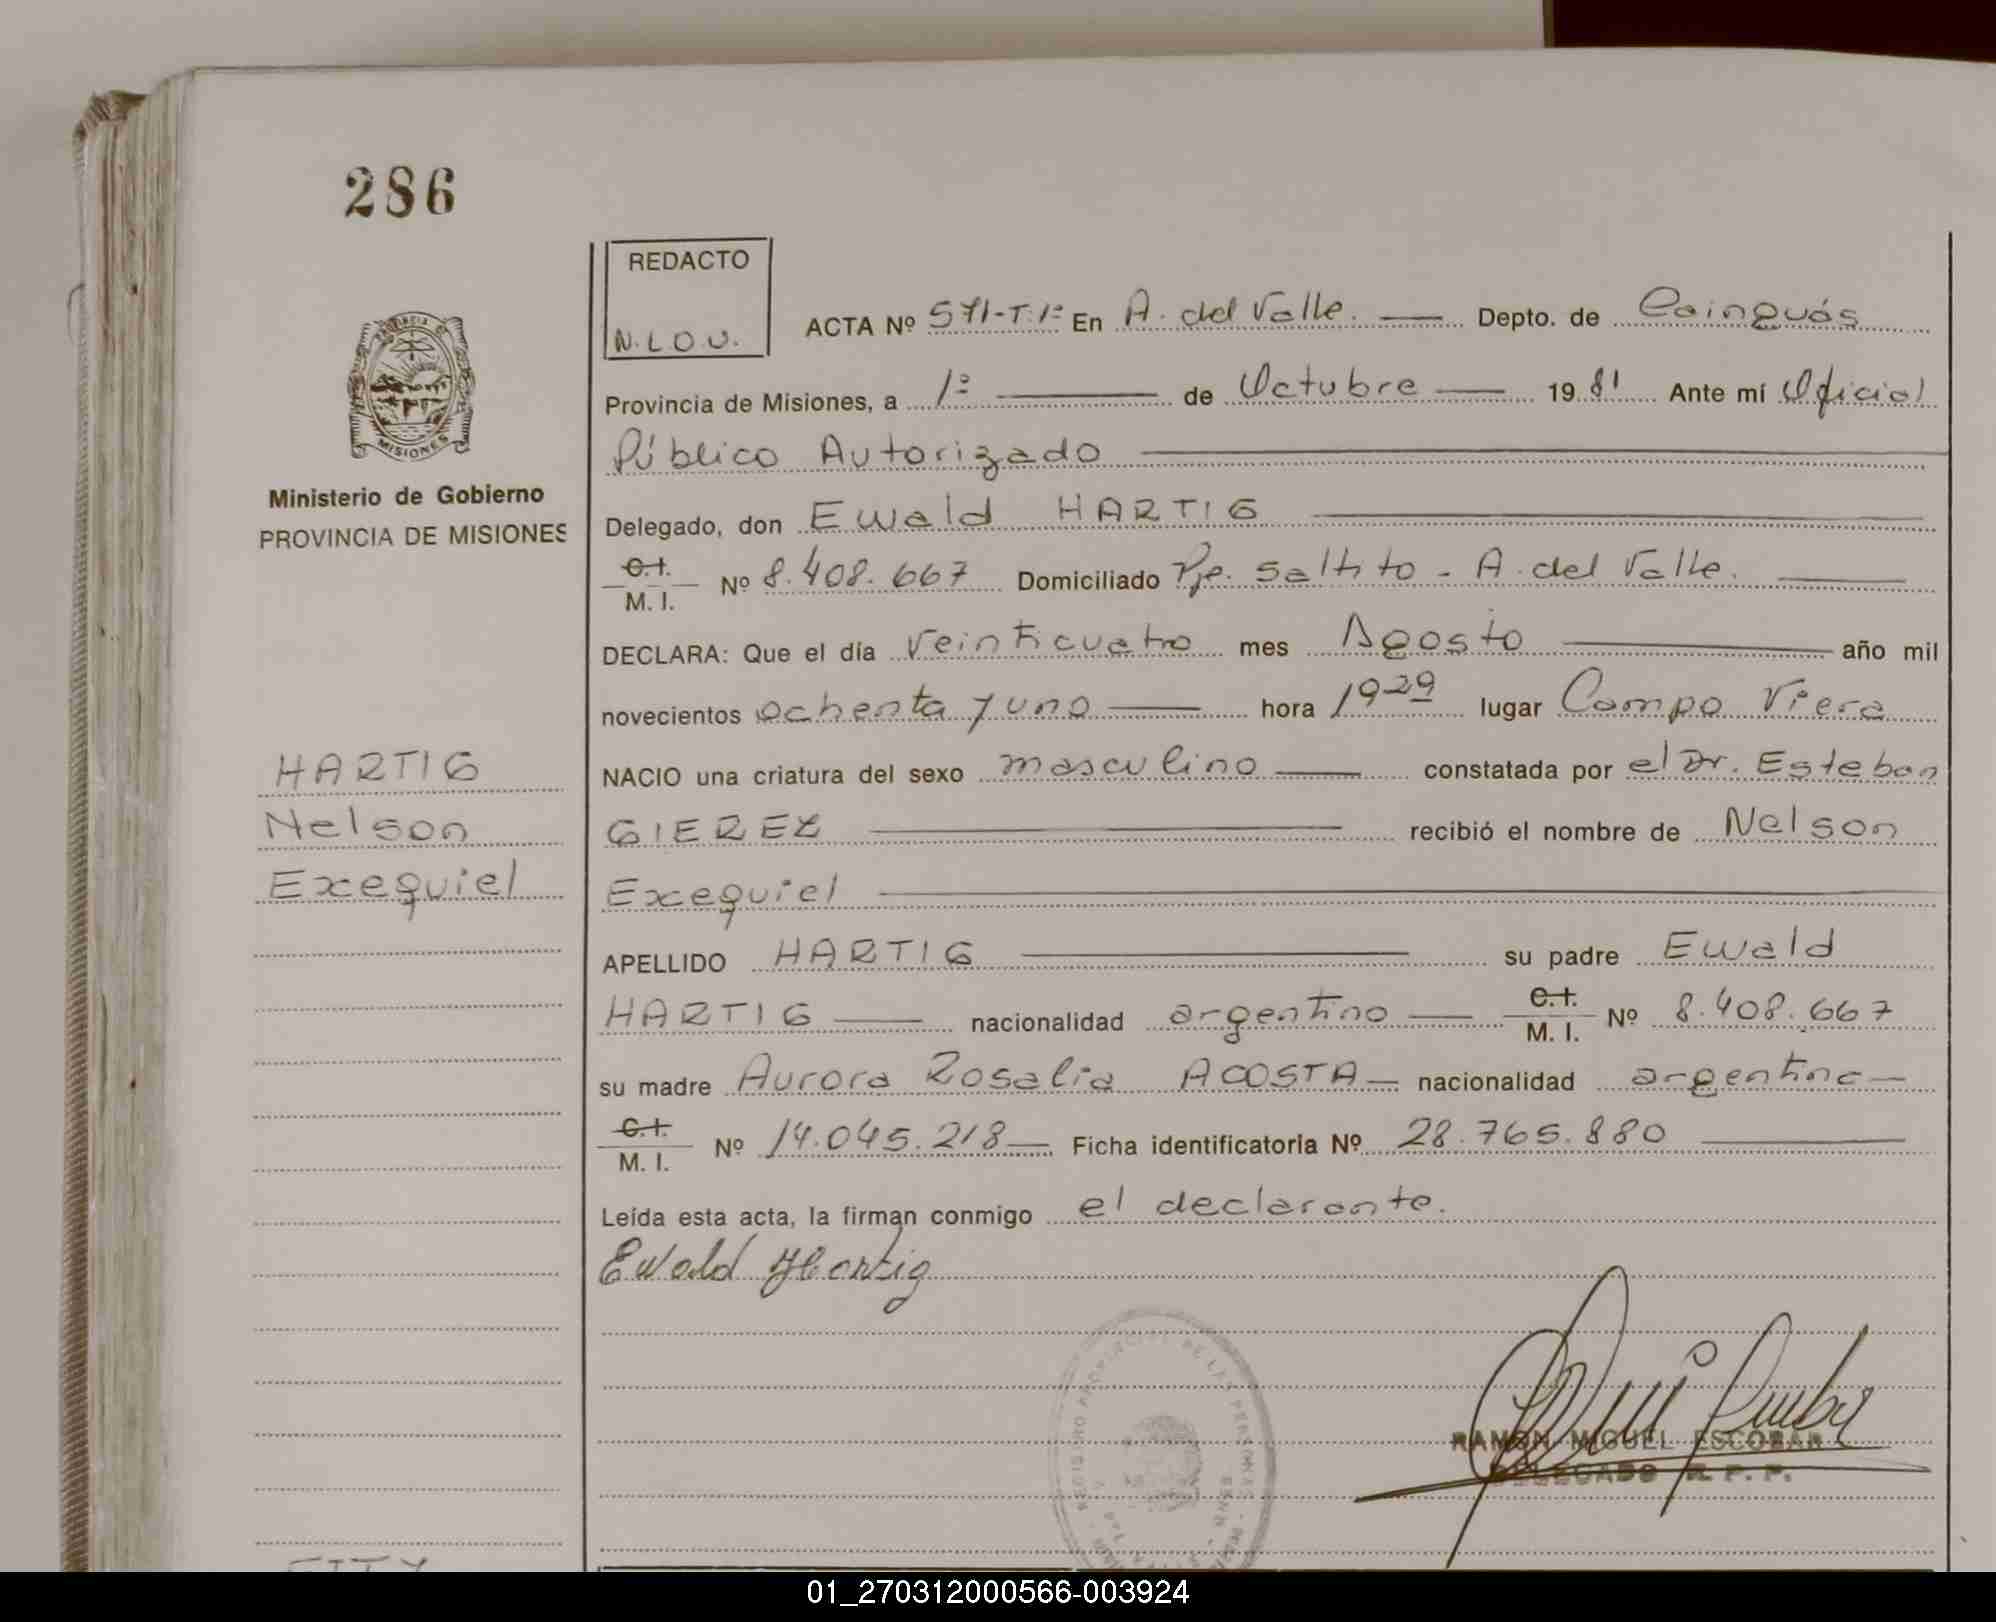 286
REDACTO
N.L.O.V.
ACTA Nº 571-T.1º En A. del Valle. Depto. de Cainguás
Provincia de Misiones, a 1º de Octubre 1981 Ante mí Oficial
Público Autorizado
PROVINCIA DE
MISIONES
Ministerio de Gobierno
PROVINCIA DE MISIONES
Delegado, don Ewald HARTIG
C.I.
M. I. Nº 8.408.667 Domiciliado Pje. Saltito - A. del Valle.
DECLARA: Que el día Veinticuatro mes Agosto año mil
novecientos ochenta y uno hora 19²⁹ lugar Campo Viera
HARTIG
Nelson
Exequiel
NACIO una criatura del sexo masculino constatada por el Dr. Esteban
GIEREZ recibió el nombre de Nelson
Exequiel
APELLIDO HARTIG su padre Ewald
HARTIG nacionalidad argentino C.I. M. I. Nº 8.408.667
su madre Aurora Rosalia ACOSTA nacionalidad argentina
C.I.
M. I. Nº 14.045.218 Ficha identificatoria Nº 28.765.880
Leída esta acta, la firman conmigo el declarante.
Ewald Hartig
REGISTRO PROVINCIAL DE LAS PERSONAS
RAMON MIGUEL ESCOBAR
DELEGADO R. P. P.
01_270312000566-003924